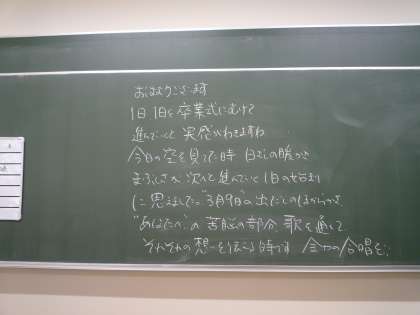 おはようございます
1日1日と卒業式にむけて
進んでいくと実感がわきますね
今日の空を見てた時 日ざしの暖かさ
まぶしさが 次へと進んでいく1日の
に思えました。"3月9日"の出だしの
"あなたへ"の苦悩の部分、歌を通して
それぞれの想いを伝える時です 合唱を